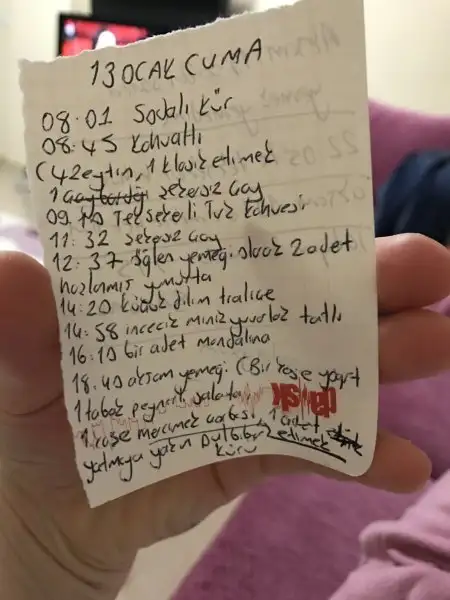 13 OCAK CUMA
08.01 Sodalı kür
08.45 kahvaltı
(4 zeytin, 1 klasik etimek
1 şekersiz çay
09. Tek şekerli Türk kahvesi
11:32 şekersiz çay
12:37 öğlen yemeği olarak 2 adet
haşlanmış yumurta
14:20 küçük dilim traliçe
14:58 incecik miniz yuvarlak tatlı
16:10 bir adet mandalina
18.40 akşam yemeği (Bir kase yoğurt
1 tabak peynirli salata
1 kase mercimek çorbası, 1 adet
etimek
yatmaya yakın Pul biber
kürü